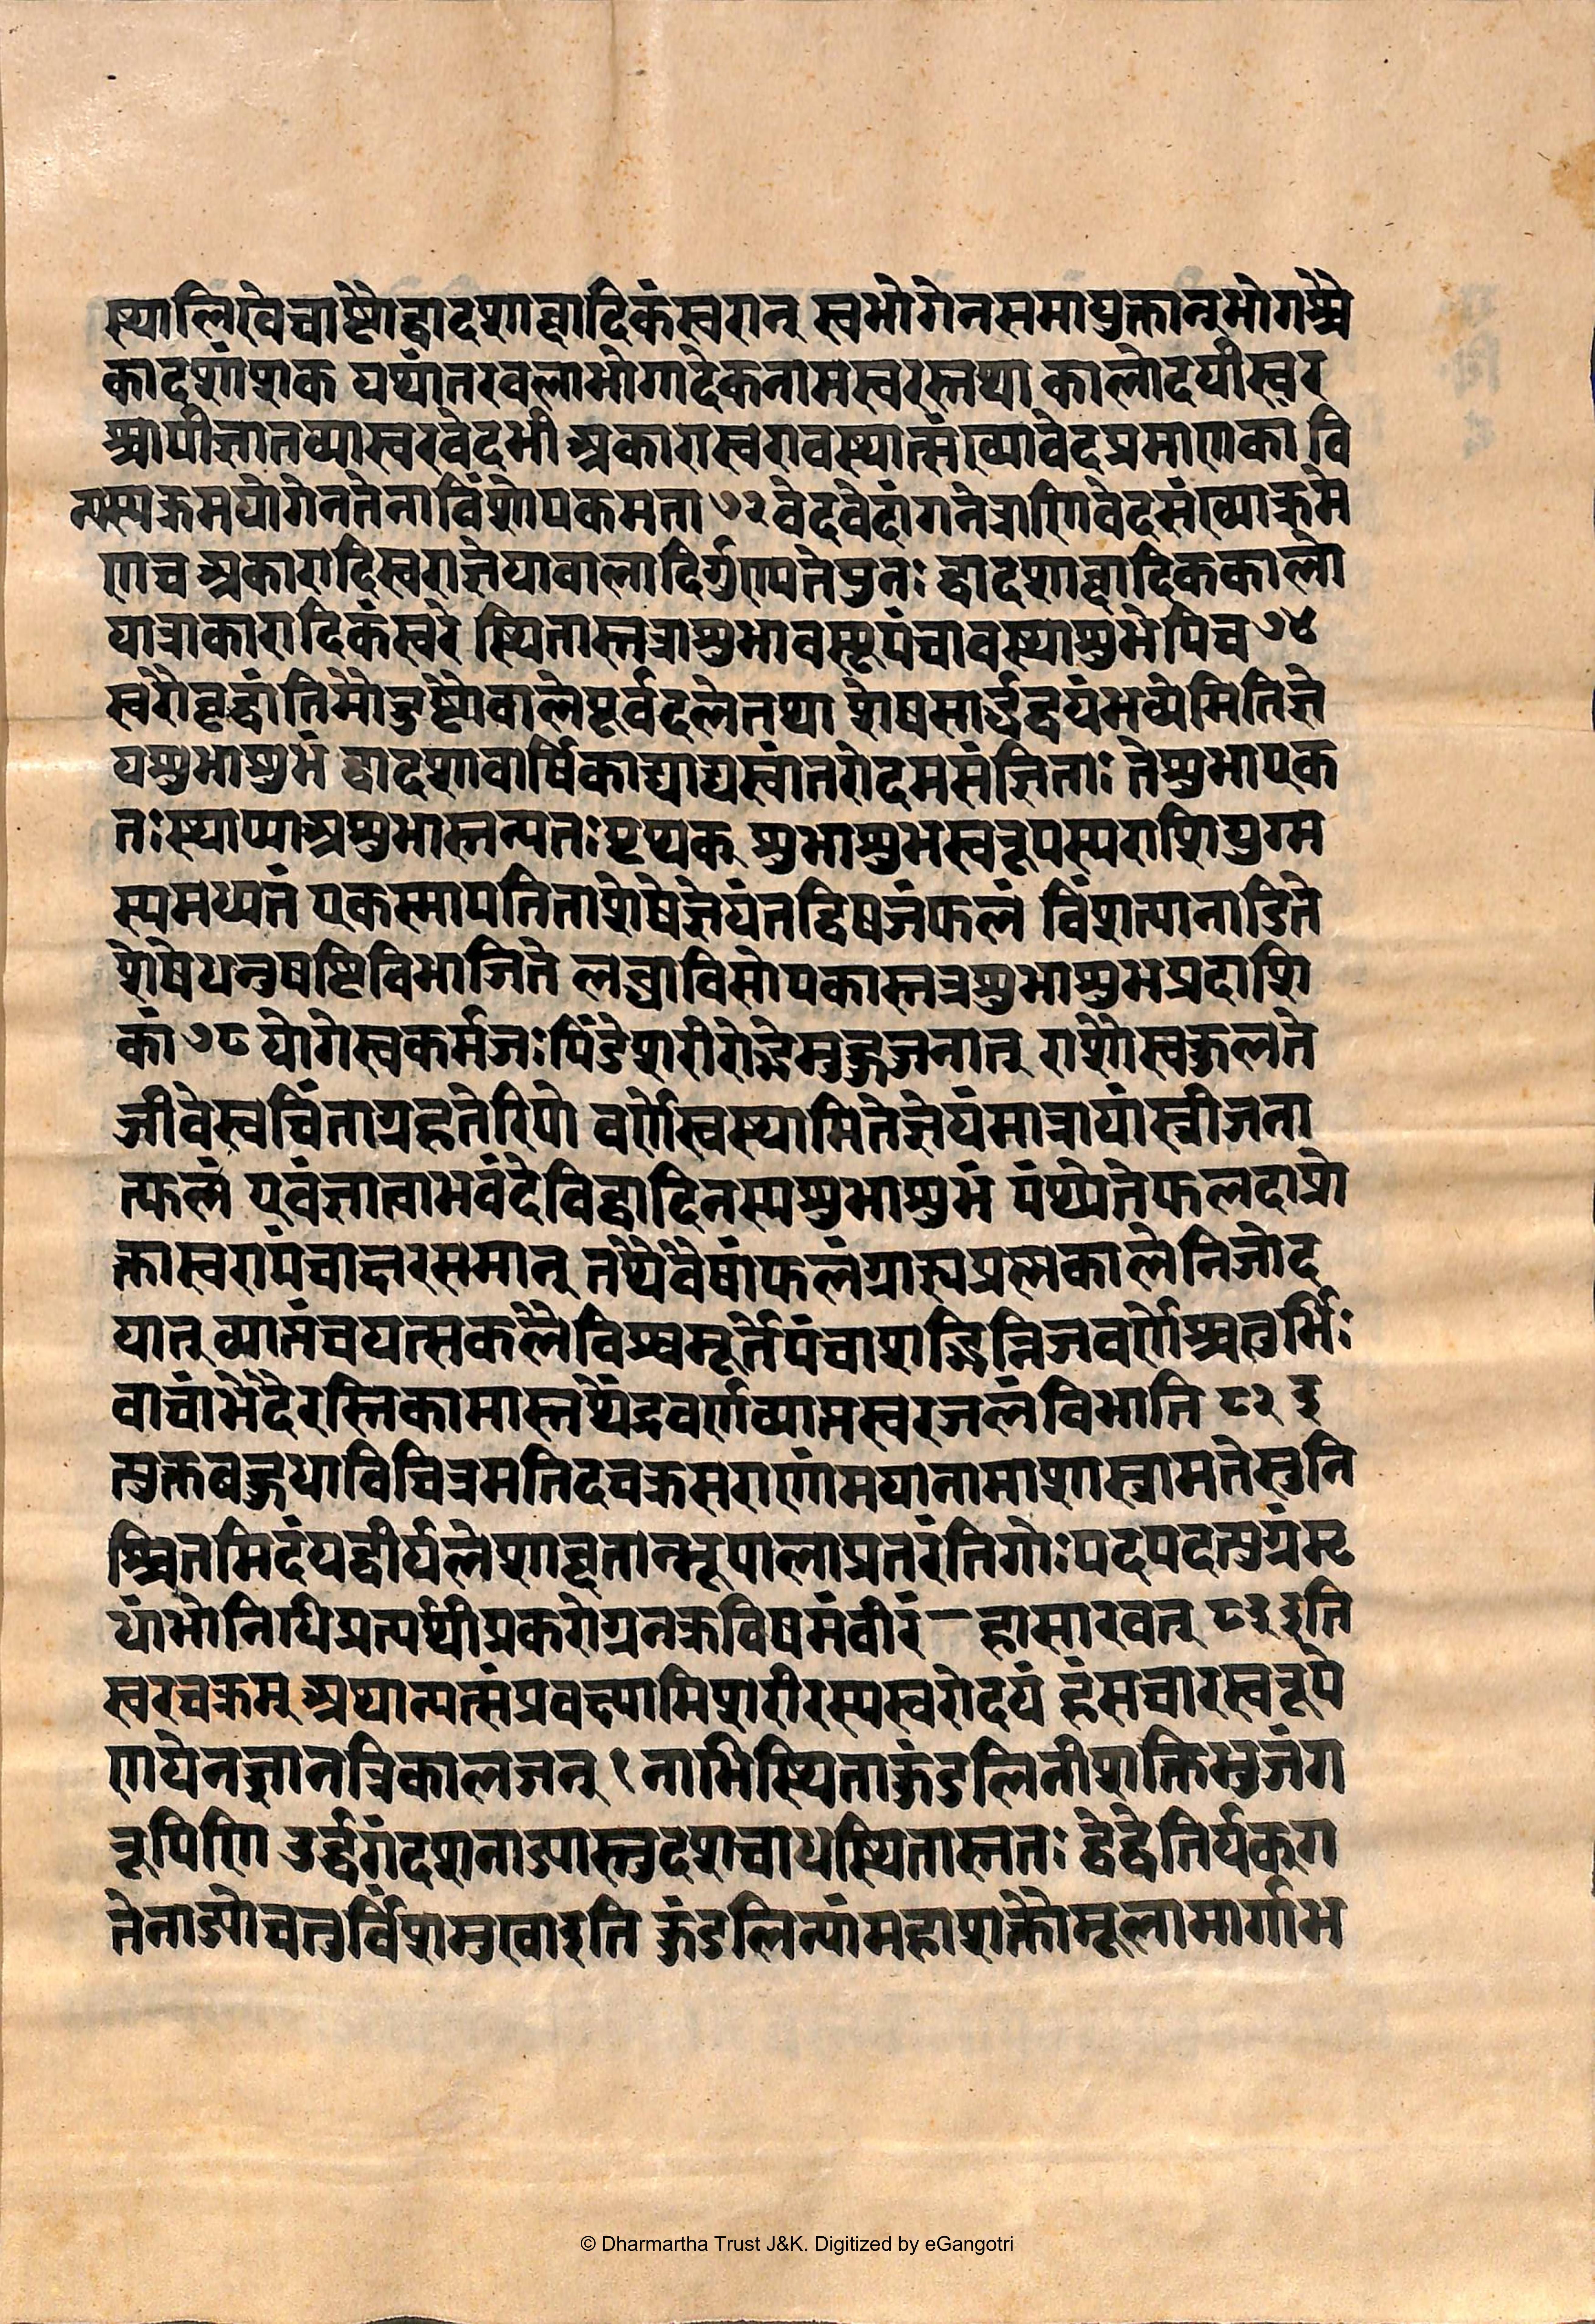 स्थालिखेच्चाष्टौद्वादशाब्दादिकंस्वरान् स्वभोगेनसमायुक्तानुभोगश्चै
कादशांशक यथांतरवलाभोगादेकनामस्वरस्तथा कालोदयीस्वर
श्चायीज्ञातव्यास्वरवेदभी अकारास्वरावस्थात्संख्यावेदप्रमाणका वि
न्यस्यक्रमयोगेनतेनाविंशोपकमता ७२ वेदवेदांगनेत्राणिवेदसंख्याक्रमे
णच अकारादिस्वराज्ञेयावालादिर्गुण्यतेपुनः द्वादशाब्दादिककालो
यात्राकारादिकंस्वरे स्थितास्तत्राशुभावस्थूपंचावस्थाशुभेपिच ७४
स्वरौवृद्धांतिमौदुष्टौवालेष्टर्वदलेतथा शेषसार्द्धद्वयंभव्येमितिज्ञे
यशुभाशुभं द्वादशावार्षिकाद्याद्यस्वांतरोदमसंज्ञिताः तेशुभाएक
तःस्थाप्याअशुभास्तन्यतःपृथक् शुभाशुभस्वरूपस्यराशियुग्म
स्यमध्यतं एकस्मापतिताशेषेज्ञेयंतद्विषजंफलं विंशत्यानाडिते
शेषेपनुषष्टिविभाजिते लब्धाविसोपकास्तत्रशुभाशुभप्रदाशि
कां ७८ योगेस्वकर्मजःपिंडेशरीरोद्धेसुहृज्जनात् राशौस्वकुलते
जीवेस्वचिंताग्रहतेरिपो वर्णेस्वस्यामितेज्ञेयंमात्रायांस्त्रीजना
त्फलं एवंज्ञात्वाभवंदेविद्वादिनस्यशुभाशुभं पंथ्येतेफलदाप्रो
क्तास्वरापंचाक्षरसमान् तथैवैषांफलंग्राह्यप्रत्नकालेनिजोद
यात् व्याप्तंचयत्सकलैविश्वमूर्तेपंचाशद्भिनिजवर्णेश्चतुर्भिः
वाचांभेदैरस्तिकामास्तथैंद्रवर्णव्याप्तस्वरजलंविभाति ८२ इ
त्युक्तवहुधाविचित्रमतिदचक्रसराणांमयानामाशास्त्रामतेसुनि
श्चितमिदंयद्वीर्यलेशावृतान्नूपालाप्रतरंतिगोःपदपदत्युग्रंम्ट
यांभोनिधिप्रत्यर्थीप्रकरोग्रनक्रविषमंवीरं – हासारवत् ८३ इति
स्वरचक्रम् अथात्यत्संप्रवक्ष्यामिशरीरस्यस्वरोदयं हंसचारस्वरूपे
णयेनज्ञानत्रिकालजन् १ नाभिस्थिताकुंडलिनीशक्तिभुजंग
रूपिणि उर्द्धगंदशनाड्यास्तुदशचाधस्थितास्ततः द्वेद्वेतिर्यक्ग
तेनाड्योचतुर्विंशमुखाइति कुंडलिन्यांमहाशक्तौमूलामार्गाभ
© Dharmartha Trust J&K. Digitized by eGangotri